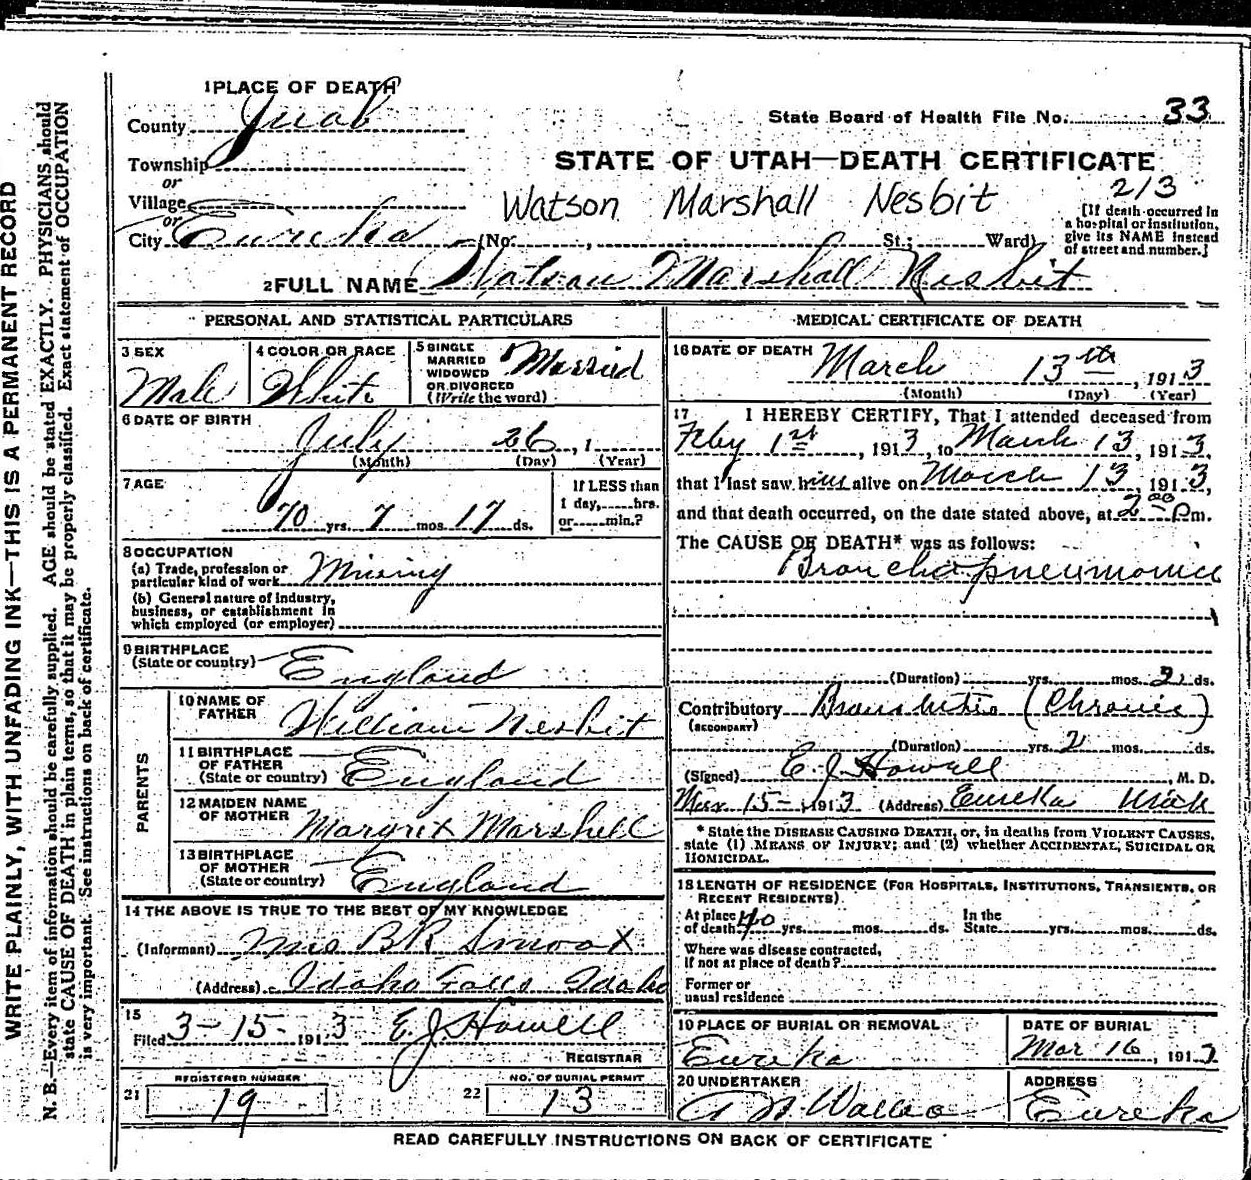 WRITE PLAINLY, WITH UNFADING INK—THIS IS A PERMANENT RECORD
N. B.—Every item of information should be carefully supplied. AGE should be stated EXACTLY. PHYSICIANS should
state CAUSE OF DEATH in plain terms, so that it may be properly classified. Exact statement of OCCUPATION
is very important. See instructions on back of certificate.
1 PLACE OF DEATH
County Juab
State Board of Health File No. 33
Township
or
STATE OF UTAH—DEATH CERTIFICATE
Village
or
Watson Marshall Nesbit
213
[If death occurred in
a hospital or institution,
give its NAME instead
of street and number.]
City Eureka (No. , St.; Ward)
2 FULL NAME Watson Marshall Nesbit
PERSONAL AND STATISTICAL PARTICULARS
3 SEX
Male
4 COLOR OR RACE
White
5 SINGLE
MARRIED
WIDOWED
OR DIVORCED
(Write the word)
Married
6 DATE OF BIRTH
July 26, 1
(Month) (Day) (Year)
7 AGE
70 yrs. 7 mos. 17 ds.
If LESS than
1 day, hrs.
or min.?
8 OCCUPATION
(a) Trade, profession or
particular kind of work Mining
(b) General nature of industry,
business, or establishment in
which employed (or employer)
9 BIRTHPLACE
(State or country) England
PARENTS
10 NAME OF
FATHER William Nesbit
11 BIRTHPLACE
OF FATHER
(State or country) England
12 MAIDEN NAME
OF MOTHER Margret Marshell
13 BIRTHPLACE
OF MOTHER
(State or country) England
14 THE ABOVE IS TRUE TO THE BEST OF MY KNOWLEDGE
(Informant) Mrs B R Smoot
(Address) Idaho Falls Idaho
15
Filed 3-15- 1913 E. J. Howell
REGISTRAR
REGISTERED NUMBER
21 19
NO. OF BURIAL PERMIT
22 13
MEDICAL CERTIFICATE OF DEATH
16 DATE OF DEATH March 13th, 1913
(Month) (Day) (Year)
17 I HEREBY CERTIFY, That I attended deceased from
Feby 1st, 1913, to March 13, 1913,
that I last saw him alive on March 13, 1913,
and that death occurred, on the date stated above, at 2 00 Pm.
The CAUSE OF DEATH* was as follows:
Broncho pneumonia
(Duration) yrs. mos. 2 ds.
Contributory Bronchitis (Chronic)
(SECONDARY)
(Duration) yrs. 2 mos. ds.
(Signed) E. J. Howell, M. D.
Mar 15-, 1913 (Address) Eureka Utah
* State the DISEASE CAUSING DEATH, or, in deaths from VIOLENT CAUSES,
state (1) MEANS OF INJURY; and (2) whether ACCIDENTAL, SUICIDAL OR
HOMICIDAL.
18 LENGTH OF RESIDENCE (FOR HOSPITALS, INSTITUTIONS, TRANSIENTS, OR
RECENT RESIDENTS).
At place
of death 40 yrs. mos. ds.
In the
State yrs. mos. ds.
Where was disease contracted,
If not at place of death?
Former or
usual residence
19 PLACE OF BURIAL OR REMOVAL
Eureka
DATE OF BURIAL
Mar 16, 1913
20 UNDERTAKER
ADDRESS
Eureka
READ CAREFULLY INSTRUCTIONS ON BACK OF CERTIFICATE